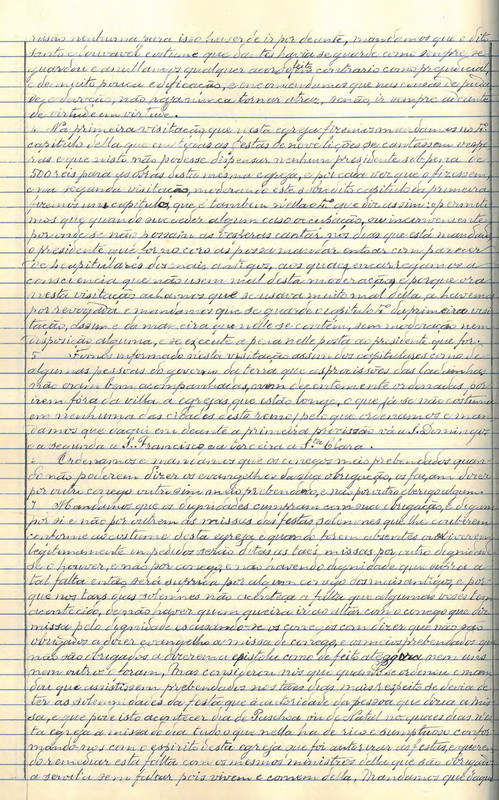 rasão nenhuma para isso haver de ir por deante, mandamos que o dito
santo e louvavel costume que dantes havia se guarde como sempre se
guardou e annullamos qualquer acordo feito em contrario como prejudicial,
e de muito pouca edificação, e encomendamos que nas cousas de pieda
de e devoção, não haja nunca tornar atraz, senão, ir sempre adiante
de virtude em virtude.
4 Na primeira visitação que nesta egreja fizemos mandamos no 7º
capitulo della que em todas as festas de nove lições se cantassem vespe
ras e que nisto não podesse dispensar nenhum presidente sob pena de
500 reis para as obras desta mesma egreja, e por cada vez que o fizessem,
e na segunda visitação, moderamos este sobredito capitulo da primeira
fizemos um capitulo, que é tambem nella o 7º que diz assim: e permitti
mos que quando succeder algum caso occupação, ou inconveniente
por onde se não possam as vesperas cantar nos dias que está mandado
o presidente que for no coro as possa mandar entoar com parecer
de 4 capitulares dos mais antigos, aos quaes encarregamos a
consciencia que não usem mal desta moderação, e porque ora
nesta visitação achamos que se usara muito mal della, a havemos
por revogada e mandamos que se guarde o capitulo 7º da primeira visi
tação, assim e da maneira que nelle se contém, sem moderação nem
disposição alguma, e se execute a pena nelle posta ao presidente que for.
5 Fomos informado nesta visitação assim dos capitulares como de
algumas pessoas do governo da terra que as procissões das ladainhas
não eram bem acompanhadas, nem decentemente ordenadas por
irem fora da villa a egrejas que estão longe, o que já se não costuma
em nenhuma das cidades deste reino, pelo que ordenamos e man
damos que daqui em deante a primeira procissão vá a S. Domingos
e a segunda a S. Francisco e a terceira a Stª Clara.
6 Ordenamos e mandamos que os conegos meio prebendados quan
do não poderem dizer os evangelhos da sua obrigação, os façam dizer
por outro conego outro sim meio prebendado, e não por outro clerigo algum.
7 Mandamos que as dignidades cumpram com sua obrigação, e digam
por si e não por outrem as missas das festas solemnes que lhe couberem
conforme ao costume desta egreja e quando forem absentes ou estiverem
legitimamente impedidos serão ditas as taes missas por outra dignidade
se o houver, e não por conego, e não havendo dignidade que suppra a
tal falta então será supprida por algum conego dos mais antigos, e por
que nos taes dias solemnes não aconteça a falta que algumas vezes tem
acontecido, de não haver quem queira ir ao altar com o conego que diz
missa pela dignidade escusando-se os conegos com dizer que não são
obrigados a dizer evangelho a missa de conego, e os meios prebendados que
não são obrigados a dizerem a epistola como de feito até agora nem uns
nem outros foram, Mas consideramos nós que quem ordenou e man
dou que assistissem prebendados nos taes dias mais respeito se devia de
ter as solemnidades da festa que a autoridade da pessoa que dizia a mis
sa, e que pode isto acontecer dia de Paschoa ou de Natal nos quaes dias nes
ta egreja a missa do dia tudo o que nella ha de rico e sumptuoso confor
mando-nos com o espirito desta egreja que foi autorizar as festas, e queren
do remediar esta falta com os mesmos ministros della que são obrigados
a servil-a sem faltar pois vivem e comem della, Mandamos que daqui